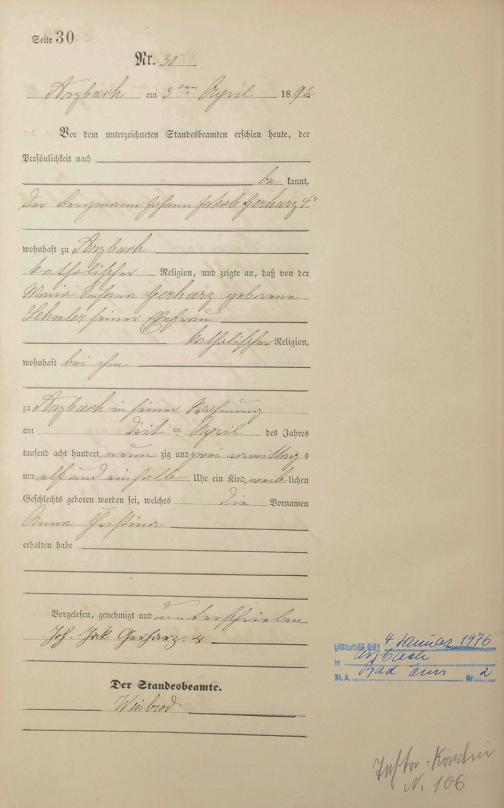 Seite 30
Nr. 30
Arzbach am 3ten April 1892
Vor dem unterzeichneten Standesbeamten erschien heute, der
Persönlichkeit nach
be kannt,
der Bergmann Johann Jakob Gerharz 4r
wohnhaft zu Arzbach
katholischer Religion, und zeigte an, daß von der
Maria Susana Gerharz geborene
seiner Ehefrau
katholischer Religion,
wohnhaft bei ihm
zu Arzbach in seiner Wohnung
am April des Jahres
tausend acht hundert neun zig und zwei vormittag s
um elf und einhalb Uhr ein Kind weib lichen
Geschlechts geboren worden sei, welches die Vornamen
Anna Christina
erhalten habe
Vorgelesen, genehmigt und unterschrieben
Joh. Jak. Gerharz 4
Der Standesbeamte.
4 Januar 1976
in Arzbach
St. A. Bad Ems Nr. 2
N. 106